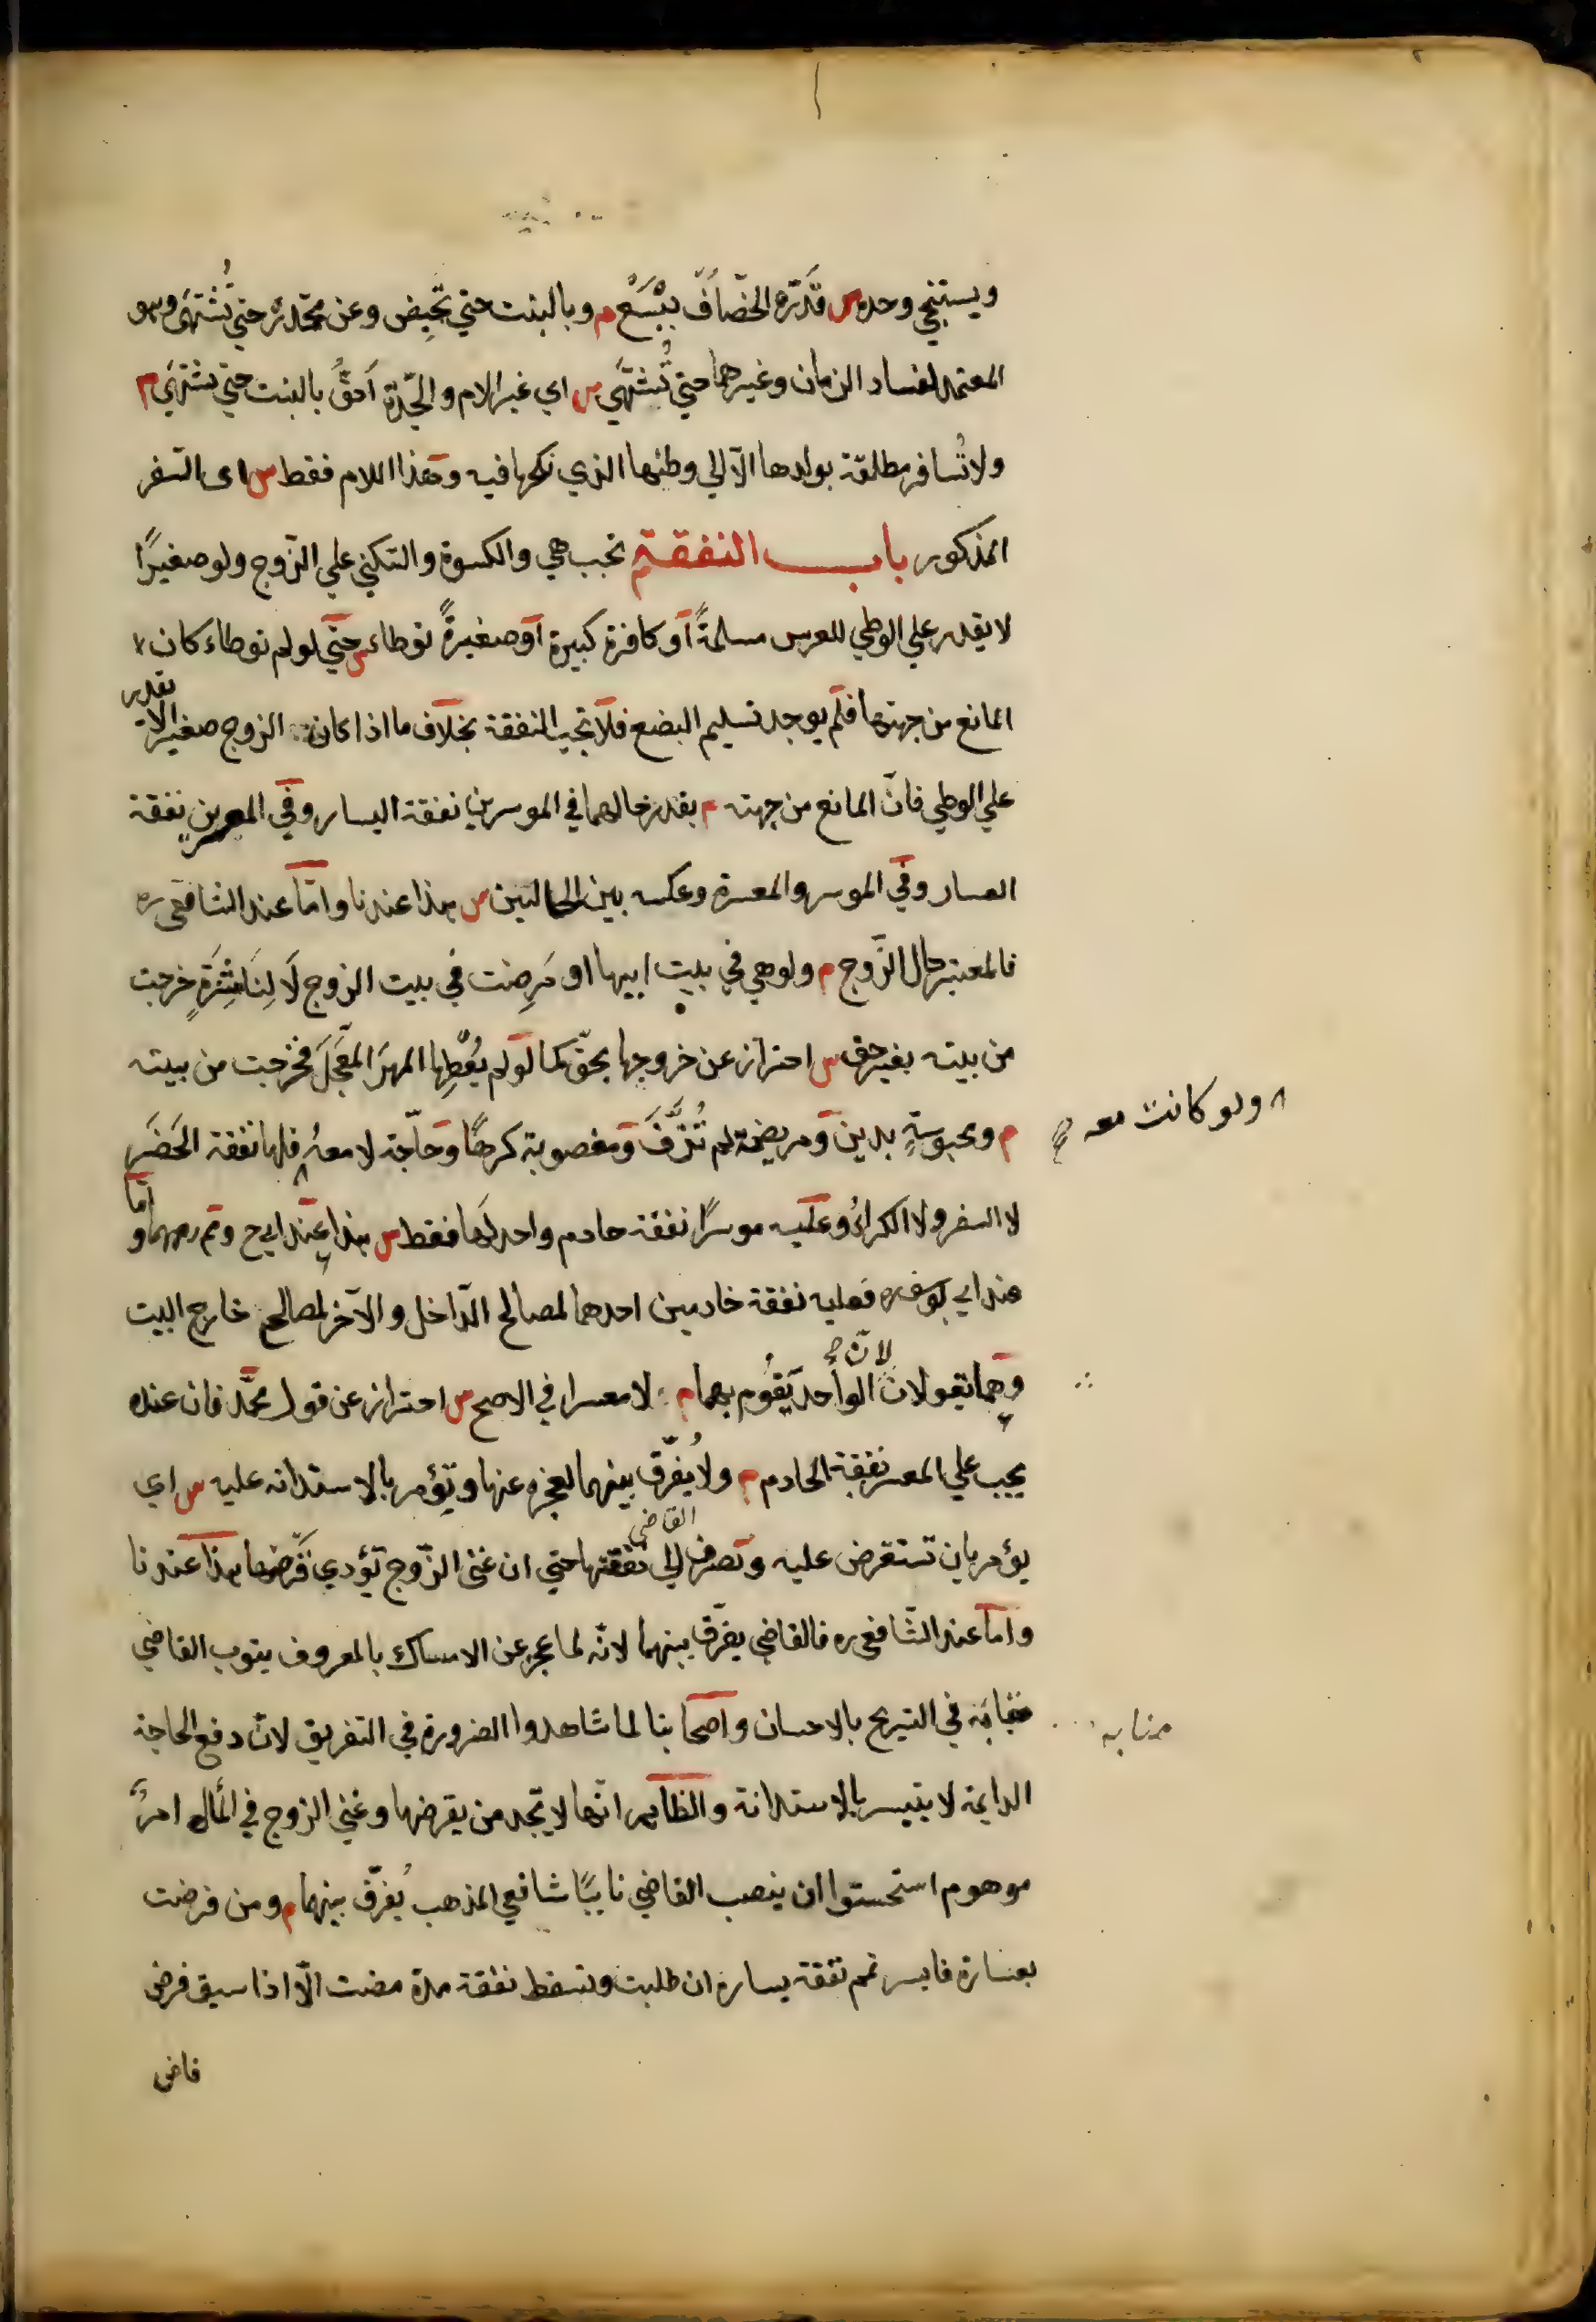 ويستنجي وحده س قدّره الخصّاف بِسَبْعٍ م وبالبنت حتي تحيض وعن محمّد ره حتي تُشتهَى وهو
المعتمد لفساد الزمان وغيرهما حتي تُشتهَي س اي غير الام والجدّة أحقُّ بالبنت حتي تشتهَي م
ولا تُسافر مطلقة بولدها الّا الي وطنها الذي نكحها فيه وهذا للام فقط س اى السّفر
المذكور باب النفقة م تجب هي والكسوة والسّكني علي الزّوج ولو صغيرًا
لا يقدر علي الوطي للعرس مسلمةً او كافرة كبيرة او صغيرةً توطاء س حتّي لو لم توطاء كان
المانع من جهتها فلم يوجد تسليم البضع فلا تجب النفقة بخلاف ما اذا كان الزوج صغيرا لا يقدر
علي الوطي فانّ المانع من جهته م بقدر حالهما في الموسرين نفقة اليسار وفي المعسرين نفقة
العسار وفي الموسر والمعسرة وعكسه بين الحالتين س هذا عندنا وامّا عند الشافعى ره
فالمعتبر حال الزّوج م ولو هي في بيت ابيها او مَرِضت في بيت الزوج لَا لِنَاشِزَةٍ خرجت
من بيته بغير حق س احتراز عن خروجها بحقّ كما لو لم يُعْطِها المهرَ المعَجّلَ فخرجت من بيته
م ومحبوسةٍ بدين ومريضة لم تُزَفَّ ومغصوبة كرهًا وحاجّة لا معهُ فلها نفقة الحَضَر
٨ ولو كانت معه صح
لا السفر ولا الكراءُ وعليه موسرًا نفقة خادم واحد لها فقط س هذا عند ابي ح وم رحمهما وامّا
عند ابي يوسف ره فعليه نفقة خادمين احدهما لمصالح الدّاخل والآخر لمصالح خارج البيت
وهما يقولان لانّ الواحد يَقُوم بهما م لا معسرا في الاصح س احتراز عن قول محمّد فان عنده
يجب علي المعسر نفقة الخادم م ولا يُفرّق بينهما لعجزه عنها وتؤمر بالاستدانه عليه س اي
يؤمر بان تستقرض عليه وتصرف الي نفقتها حتي ان غنى الزّوج تؤدي قرضها هذا عندنا
القاضي
وامّا عند الشّافعى ره فالقاضي يفرّق بينهما لانّه لما عجز عن الامساك بالمعروف ينوب القاضي
منابه في التسريح بالاحسان واصحابنا لما شاهدوا الضرورة في التفريق لانّ دفع الحاجة
منابه
الدايمة لا يتيسر بالاستدانة والظاهر انّها لا تجد من يقرضها وغني الزوج في المآل امرٌ
موهوم استحسنوا ان ينصب القاضي نايبًا شافعي المذهب يُفرّق بينهما م ومن فرضت
بعساره فايسر تمم نفقة يساره ان طلبت وتسقط نفقة مدّة مضت الّا اذا سبق فرض
قاض